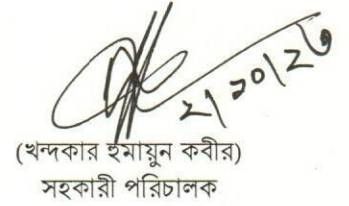 ২/১০/২৩
(খন্দকার হুমায়ুন কবীর)
সহকারী পরিচালক